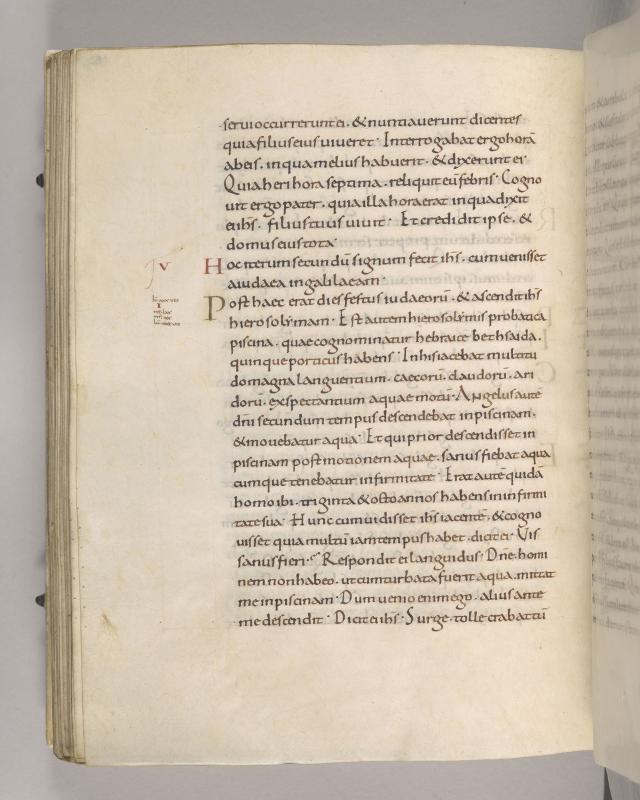 serui occurrerunt ei · & nuntiauerunt dicentes
quia filius eius uiueret · Interrogabat ergo horā
ab eis · in qua melius habuerit · & dixerunt ei
Quia heri hora septima · reliquit eū febris · Cogno
uit ergo pater · quia illa hora erat in qua dixit
ei ihs · filius tuus uiuit · Et credidit ipse · &
domus eius tota ·
Hoc iterum secundū signum fecit ihs · cum uenisset
a iudaea in galilaeam ·
Post haec erat dies festus iudaeorū · & ascendit ihs
hierosolymam · Est autem hierosolymis probatica
piscina · quae cognominatur hebraice bethsaida ·
quinque porticus habens · In his iacebat multitu
do magna languentium · caecorū · claudorū · ari
dorū · exspectantium aquae motū · Angelus autē
dni secundum tempus descendebat in piscinam ·
& mouebatur aqua · Et qui prior descendisset in
piscinam post motionem aquae · sanus fiebat a qua
cumque tenebatur infirmitate · Erat autē quidā
homo ibi · triginta & octo annos habens in infirmi
tate sua · Hunc cum uidisset ihs iacentē · & cogno
uisset quia multū iam tempus habet · dicit ei · Vis
sanus fieri · Respondit ei languidus · Dne · homi
nem non habeo · ut cum turbata fuerit aqua · mittat
me in piscinam · Dum uenio enim ego · alius ante
me descendit · Dicit ei ihs · Surge · tolle crabattū